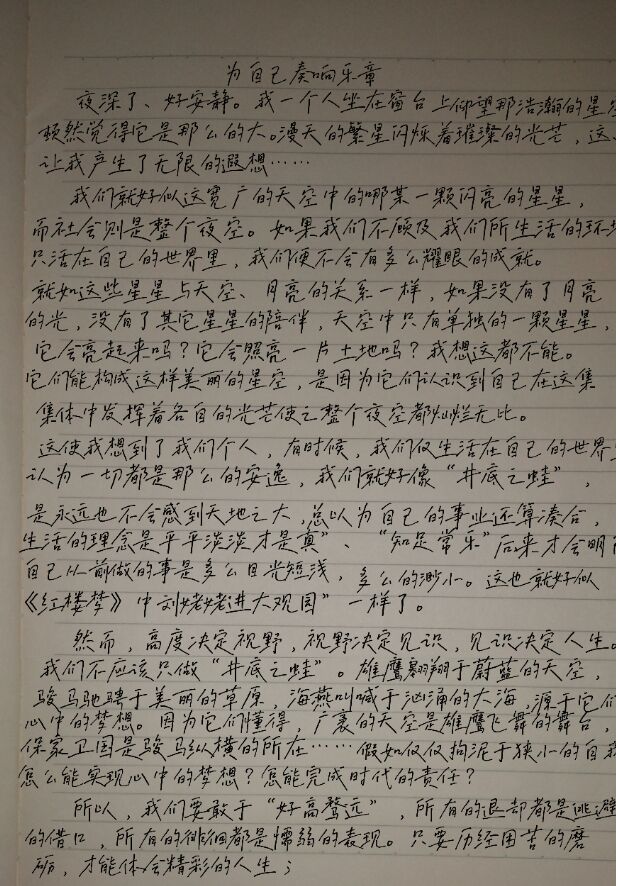 为自己奏响乐章
夜深了、好安静。我一个人坐在窗台上仰望那浩瀚的星空
顿然觉得它是那么的大。漫天的繁星闪烁着璀璨的光芒，这
让我产生了无限的遐想……
我们就好似这宽广的天空中的哪某一颗闪亮的星星，
而社会则是整个夜空。如果我们不顾及我们所生活的环境
只活在自己的世界里，我们便不会有多么耀眼的成就。
就如这些星星与天空、月亮的关系一样，如果没有了月亮
的光，没有了其它星星的陪伴，天空中只有单独的一颗星星，
它会亮起来吗？它会照亮一片土地吗？我想这都不能。
它们能构成这样美丽的星空，是因为它们认识到自己在这集
集体中发挥着各自的光芒使之整个夜空都灿烂无比。
这使我想到了我们个人，有时候，我们仅生活在自己的世界
认为一切都是那么的安逸，我们就好像“井底之蛙”，
是永远也不会感到天地之大，总以为自己的事业还算凑合，
生活的理念是平平淡淡才是真”、“知足常乐”后来才会明
自己从前做的事是多么目光短浅，多么的渺小。这也就好似
《红楼梦》中刘姥姥进大观园”一样了。
然而，高度决定视野，视野决定见识，见识决定人生。
我们不应该只做“井底之蛙”。雄鹰翱翔于蔚蓝的天空，
骏马驰骋于美丽的草原，海燕叫喊于汹涌的大海，源于它们
心中的梦想。因为它们懂得，广袤的天空是雄鹰飞舞的舞台，
保家卫国是骏马纵横的所在……假如仅仅拘泥于狭小的自我
怎么能实现心中的梦想？怎能完成时代的责任？
所以，我们要敢于“好高骛远”，所有的退却都是逃避
的借口，所有的徘徊都是懦弱的表现。只要历经困苦的磨
砺，才能体会精彩的人生；